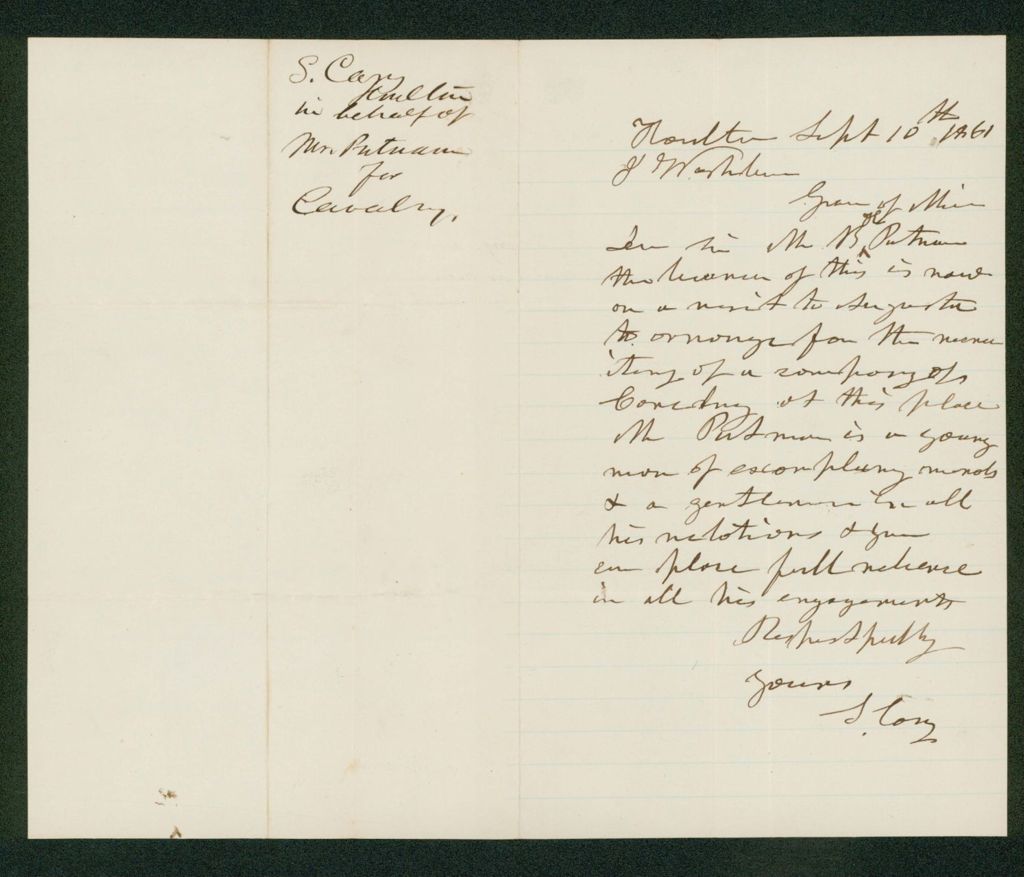 S. Cary
Houlton
in behalf of
Mr. Putnam
for
Cavalry.
Houlton Sept 10th 1861
J Washburn
Gov of Maine
Dear Sir Mr B Putnam
the bearer of this is now
on a visit to Augusta
to arrange for the recru
iting of a company of
Cavalry at this place
Mr Putnam is a young
man of exemplary morals
& a gentleman in all
his relations & you
can place full reliance
in all his engagements
Respectfully
yours
S. Cary